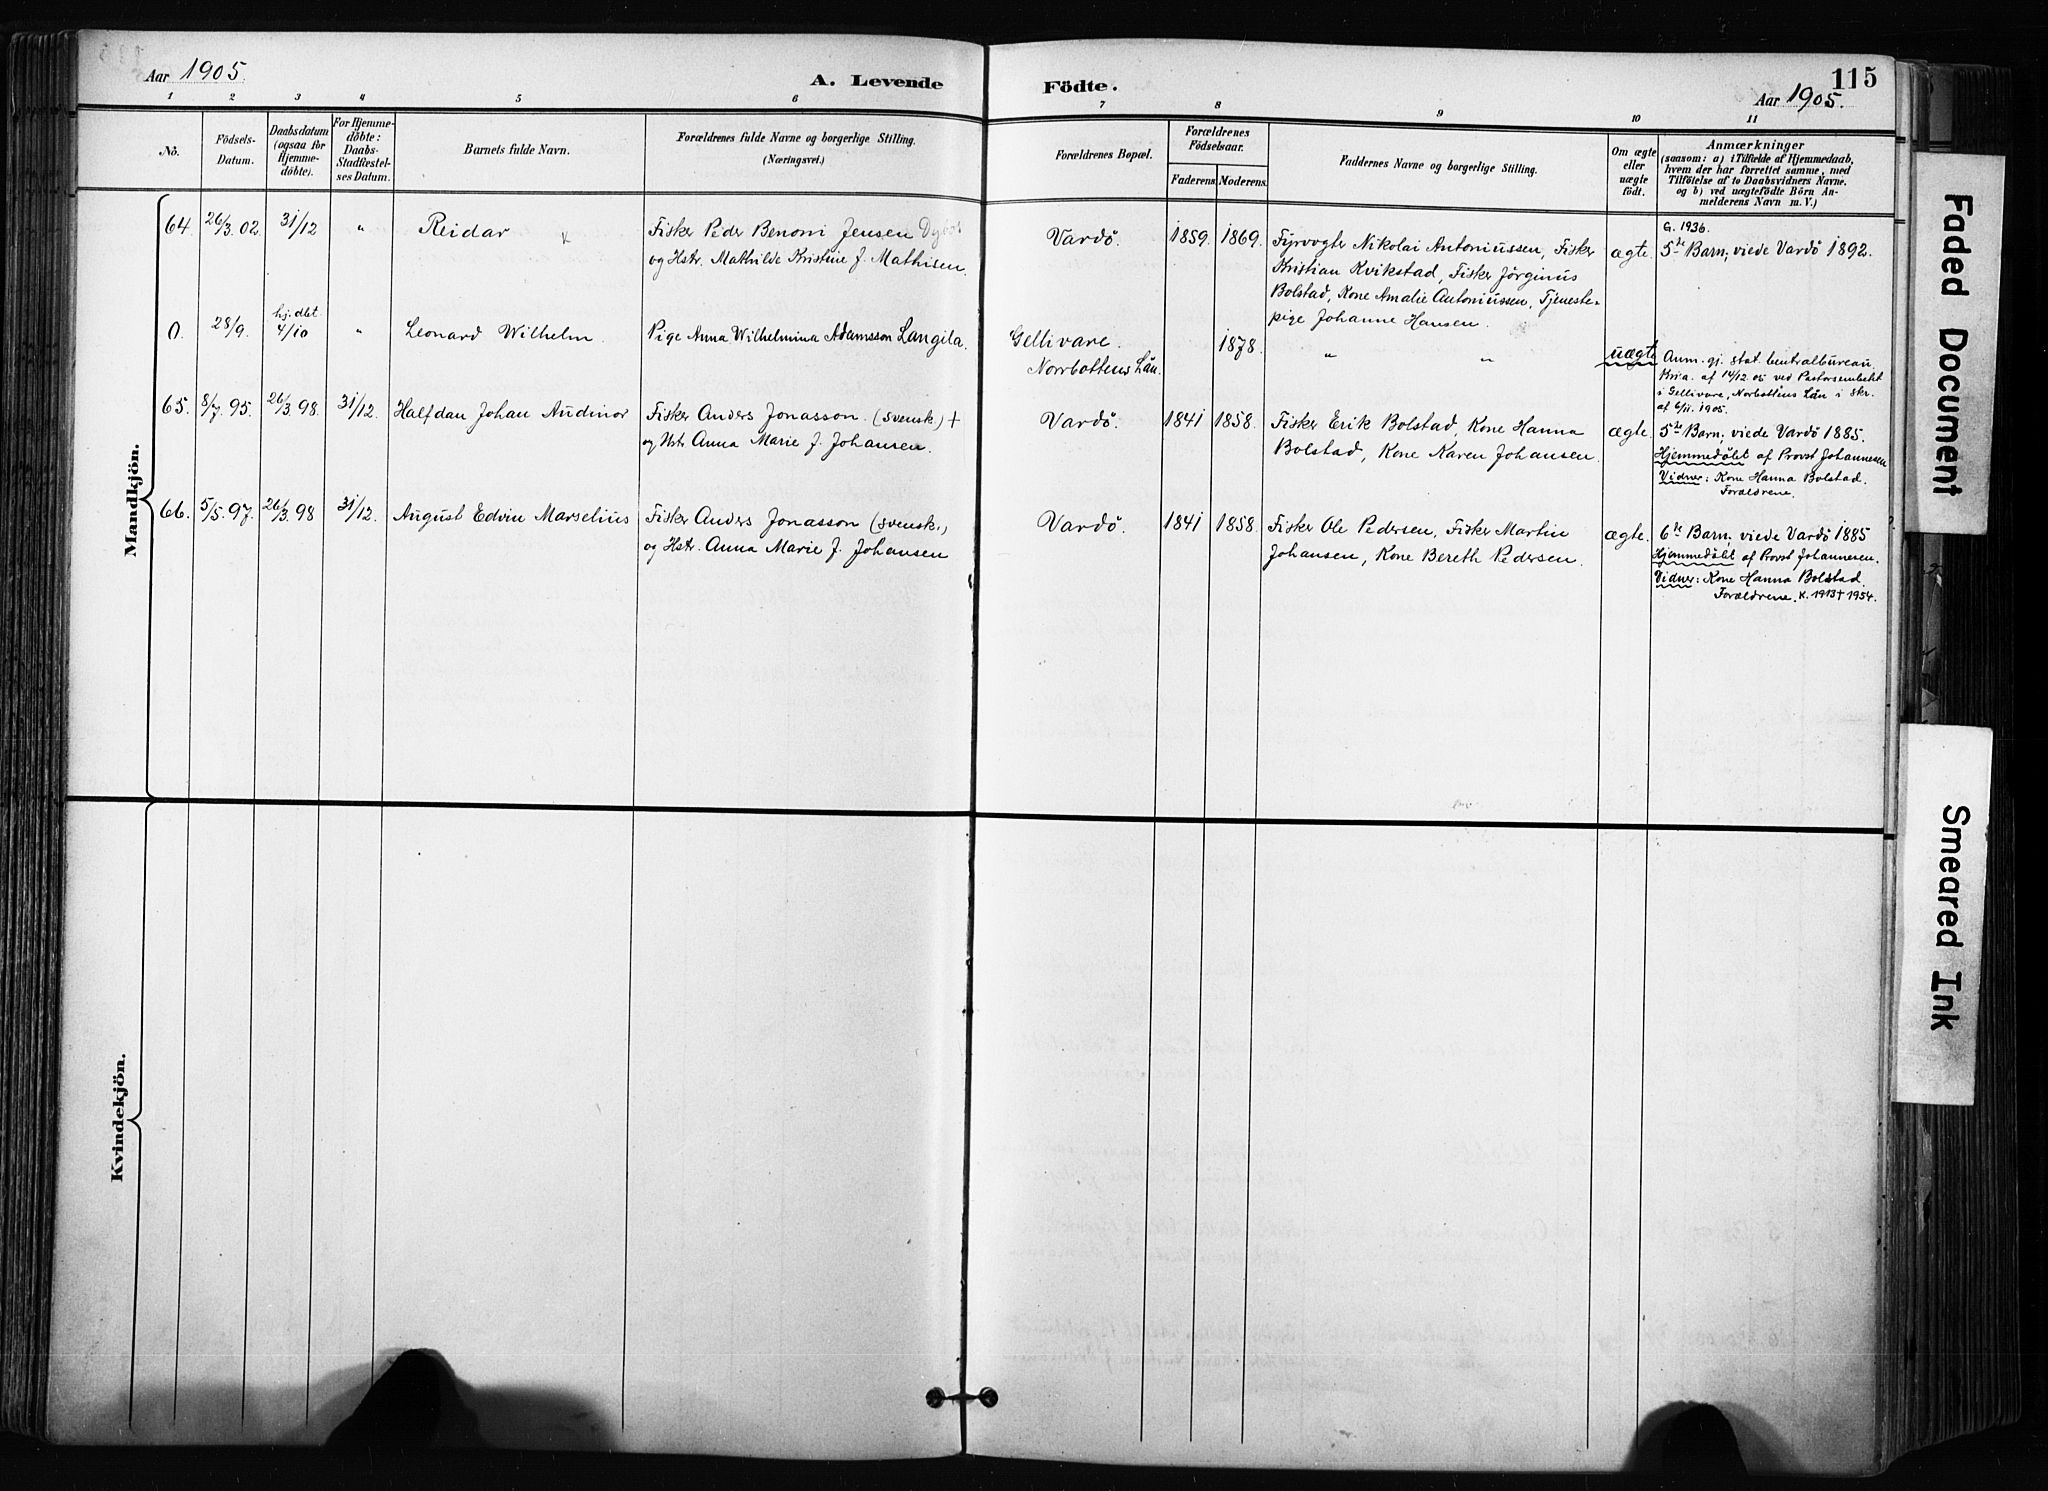 Aar 1905.
A. Levende
Födte.
115
Aar 1905.
1 2 3 4 5 6 7 8 9 10 11
No.
Födsels-
Datum.
Daabsdatum
(ogsaa for
Hjemme-
döbte).
For Hjemme-
döbte:
Daabs-
Stadfæstel-
ses Datum.
Barnets fulde Navn.
Forældrenes fulde Navne og borgerlige Stilling.
(Næringsvei.)
Forældrenes Bopæl.
Forældrenes
Födselsaar.
Faderens. Moderens.
Faddernes Navne og borgerlige Stilling.
Om ægte
eller
uægte
födt.
Anmærkninger
(saasom: a) i Tilfælde af Hjemmedaab,
hvem der har forrettet samme, med
Tilföielse af to Daabsvidners Navne.
og b) ved uægtefödte Börn An-
melderens Navn m. V.)
Mandkjön.
64. 26/3.02. 31/12 " Reidar
Fisker Peder Benoni Jensen
og Hstr. Mathilde Kristine f. Mathisen.
Vardö. 1859. 1869.
Fyrvogter Nikolai Antoniussen, Fisker
Kristian Kvikstad, Fisker Jörginus
Bolstad, Kone Amalie Antoniussen, Tjeneste-
pige Johanne Hansen.
ægte.
G. 1936.
5te Barn; viede Vardö 1892.
0. 28/9. hj. dbt.
4/10 " Leonard Wilhelm.
Pige Anna Wilhelmina Adamsson Langila.
Gellivare.
Norrbottens Län.
1878. " "
uægte
Anm. gj. stat. Centralbureau,
Kria. af 14/12 05 ved Pastorsembetet
i Gellivare, Norbottens Län i skr.
af 6/11. 1905.
65. 8/7. 95. 26/3.98. 31/12. Halfdan Johan Audinor
Fisker Anders Jonasson. (svensk.) +
og Hstr. Anna Marie f. Johansen.
Vardö. 1841 1858.
Fisker Erik Bolstad, Kone Hanna
Bolstad, Kone Karen Johansen.
ægte.
5te Barn; viede Vardö 1885.
Hjemmedöbt af Provst Johannesen
Vidner: Kone Hanna Bolstad.
Forældrene.
66. 5/5. 97. 26/3.98 31/12. August Edvin Marselius
Fisker Anders Jonasson (svensk.)
og Hstr. Anna Marie f. Johansen
Vardö. 1841 1858.
Fisker Ole Pedersen, Fisker Martin
Johansen, Kone Bereth Pedersen.
ægte.
6te Barn; viede Vardö 1885
Hjemmedöbt af Provst Johannesen.
Vidner: Kone Hanna Bolstad.
Forældrene. K. 1913 + 1954.
Kvindekjön.
Faded Document
Smeared Ink